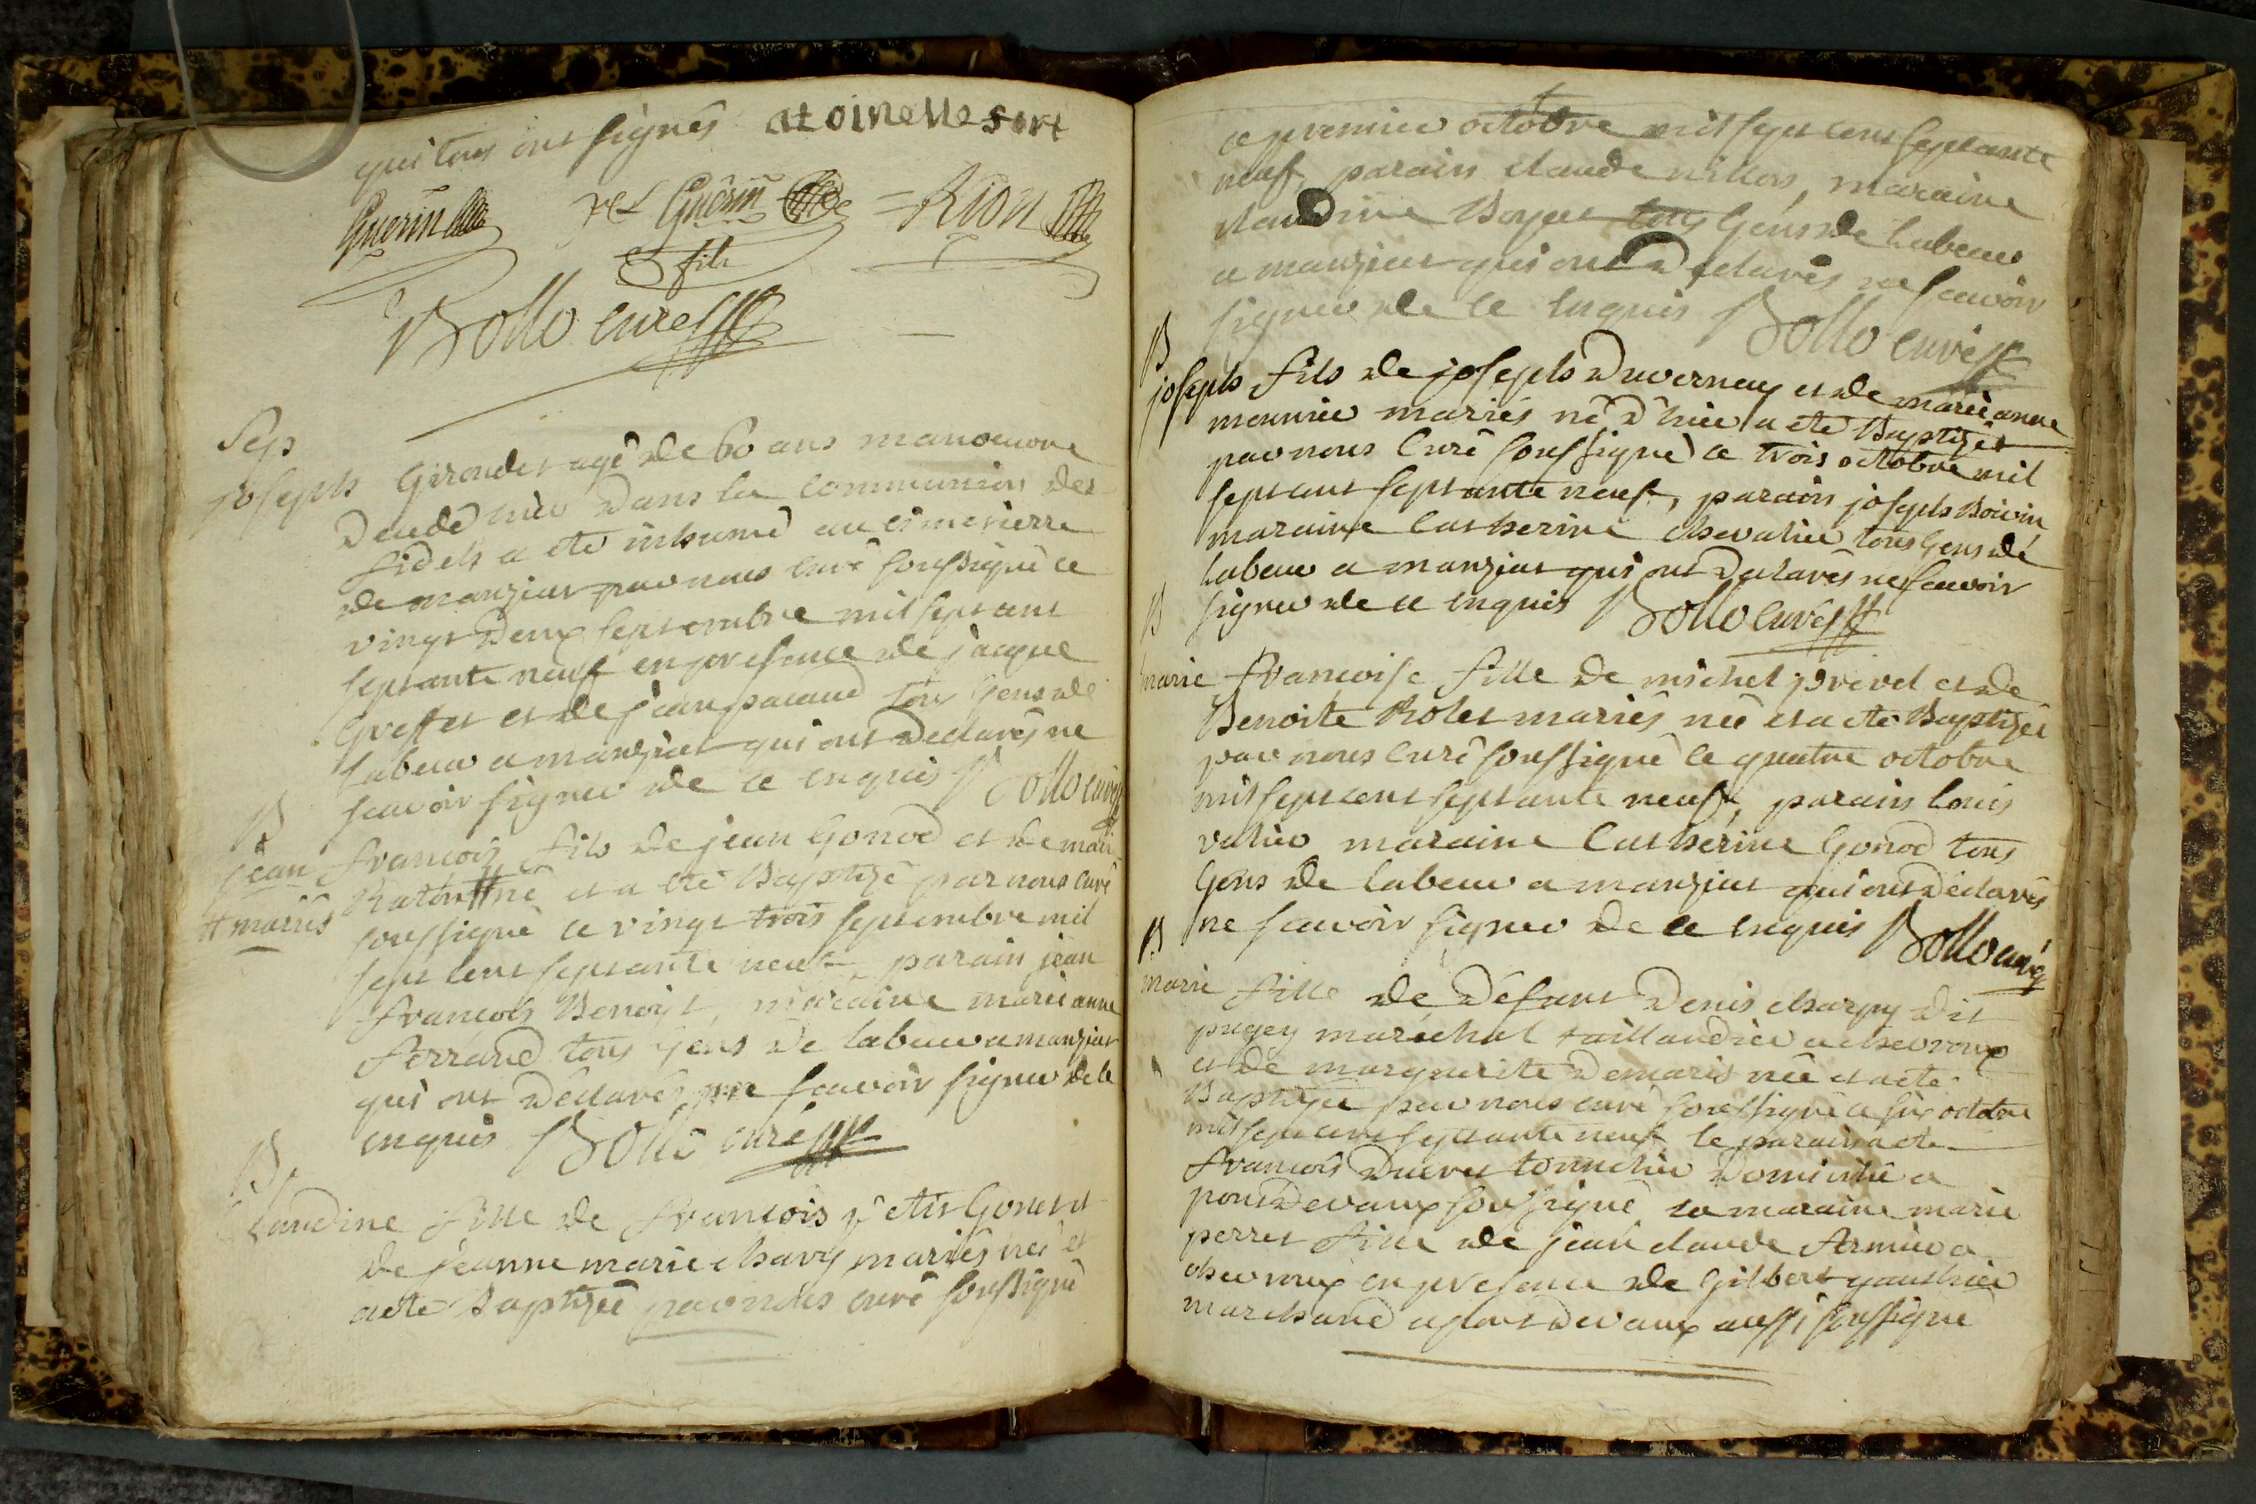 qui tous ont signés atoinette sort
Guerin J Guerin fils Rion
Bollo curé
Sep
joseph Girondet agé de 60 ans manoeuvre
decedé hier dans la communion des
fidels a eté inhumé au cimetierre
de manziat par nous curé soussigné ce
vingt deux septembre mil sept cent
septante neuf en presence de jacque
Greffet et de jean pacaud tous Gens de
labeur a manziat qui ont declarés ne
scavoir signer de ce enquis Bollo curé
B
jean francois fils de jean Gonod et de marie
Raton # né et a eté Baptizé par nous curé
# mariés
soussigné ce vingt trois septembre mil
sept cent septante neuf, parain jean
francois Benoist, maraine marie anne
ferrand tous Gens de labeur a manziat
qui ont declarés ne scavoir signer de ce
enquis Bollo curé
B
Claudine fille de francois Gonet et
de jeanne marie chavy mariés née et
a eté Baptizée par nous curé soussigné
ce premier octobre mil sept cent septante
neuf, parain claude, maraine
claudine Boyat tous Gens de labeur
a manziat qui ont declarés ne scavoir
signer de ce enquis Bollo curé
B
joseph fils de joseph Duvernay et de marie anne
meunier mariés né d'hier a eté Baptizé
par nous curé soussigné ce trois octobre mil
sept cent septante neuf, parain joseph Boivin
maraine Catherine chevalier tous Gens de
labeur a manziat qui ont declarés ne scavoir
signer de ce enquis Bollo curé
B
marie francoise fille de michel privel et de
Benoite Rolet mariés née et a eté Baptizée
par nous curé soussigné ce quatre octobre
mil sept cent septante neuf, parain louis
valier maraine Catherine Gonod tous
Gens de labeur a manziat qui ont declarés
ne scavoir signer de ce enquis Bollo curé
B
marie fille de defunt Denis charpy dit
pugey maréchal taillandier a chevroux
et de marguerite Demaris née et a eté
Baptizée par nous curé soussigné ce six octobre
mil sept cent septante neuf le parain a eté
francois tonnelier Domicilié a
pont devaux soussigné la maraine marie
perret fille de jean claude fermier a
chevroux en presence de Gilbert gauthier
marchand a pont devaux aussi soussigné